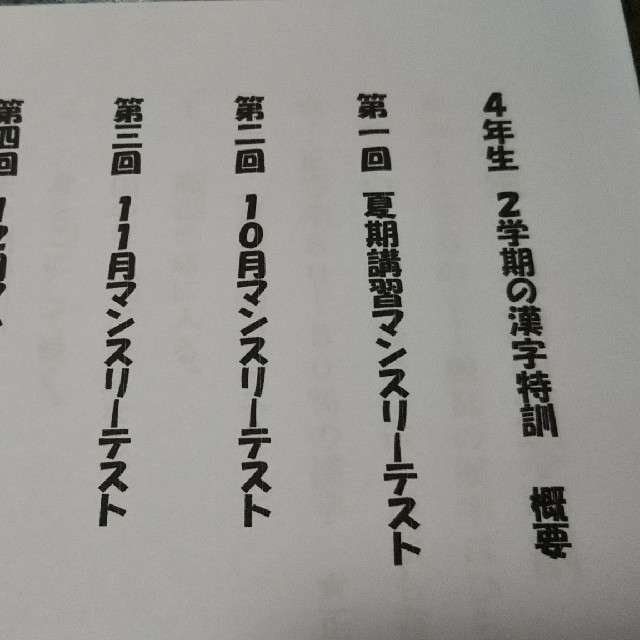 4年生 2学期の漢字特訓 概要
第一回 夏期講習マンスリーテスト
第二回 10月マンスリーテスト
第三回 11月マンスリーテスト
第四回